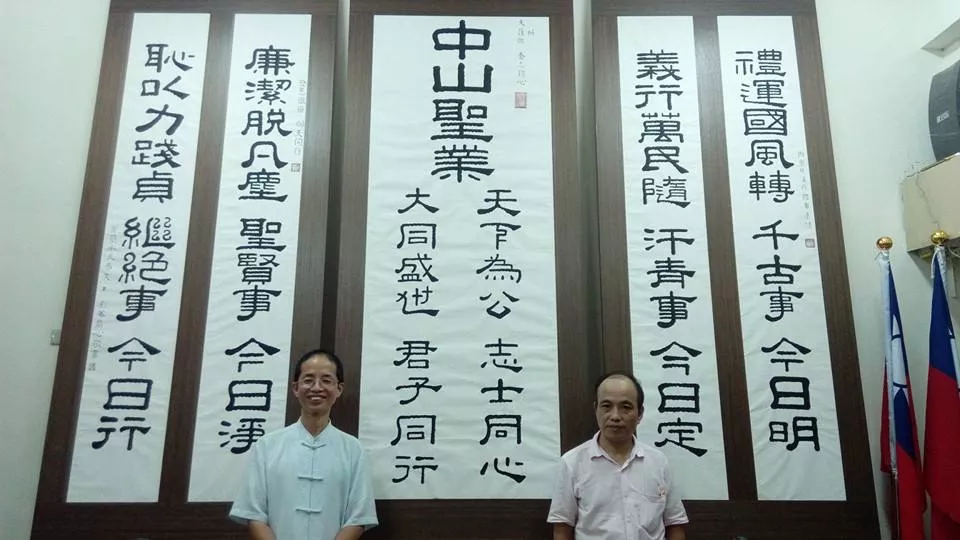 禮運國風轉 千古事 今日明
義行萬民隨 汗青事 今日定
中山聖業
天下為公 志士同心
大同盛世 君子同行
廉潔脫凡塵 聖賢事 今日淨
恥以力踐貞 繼絕事 今日行